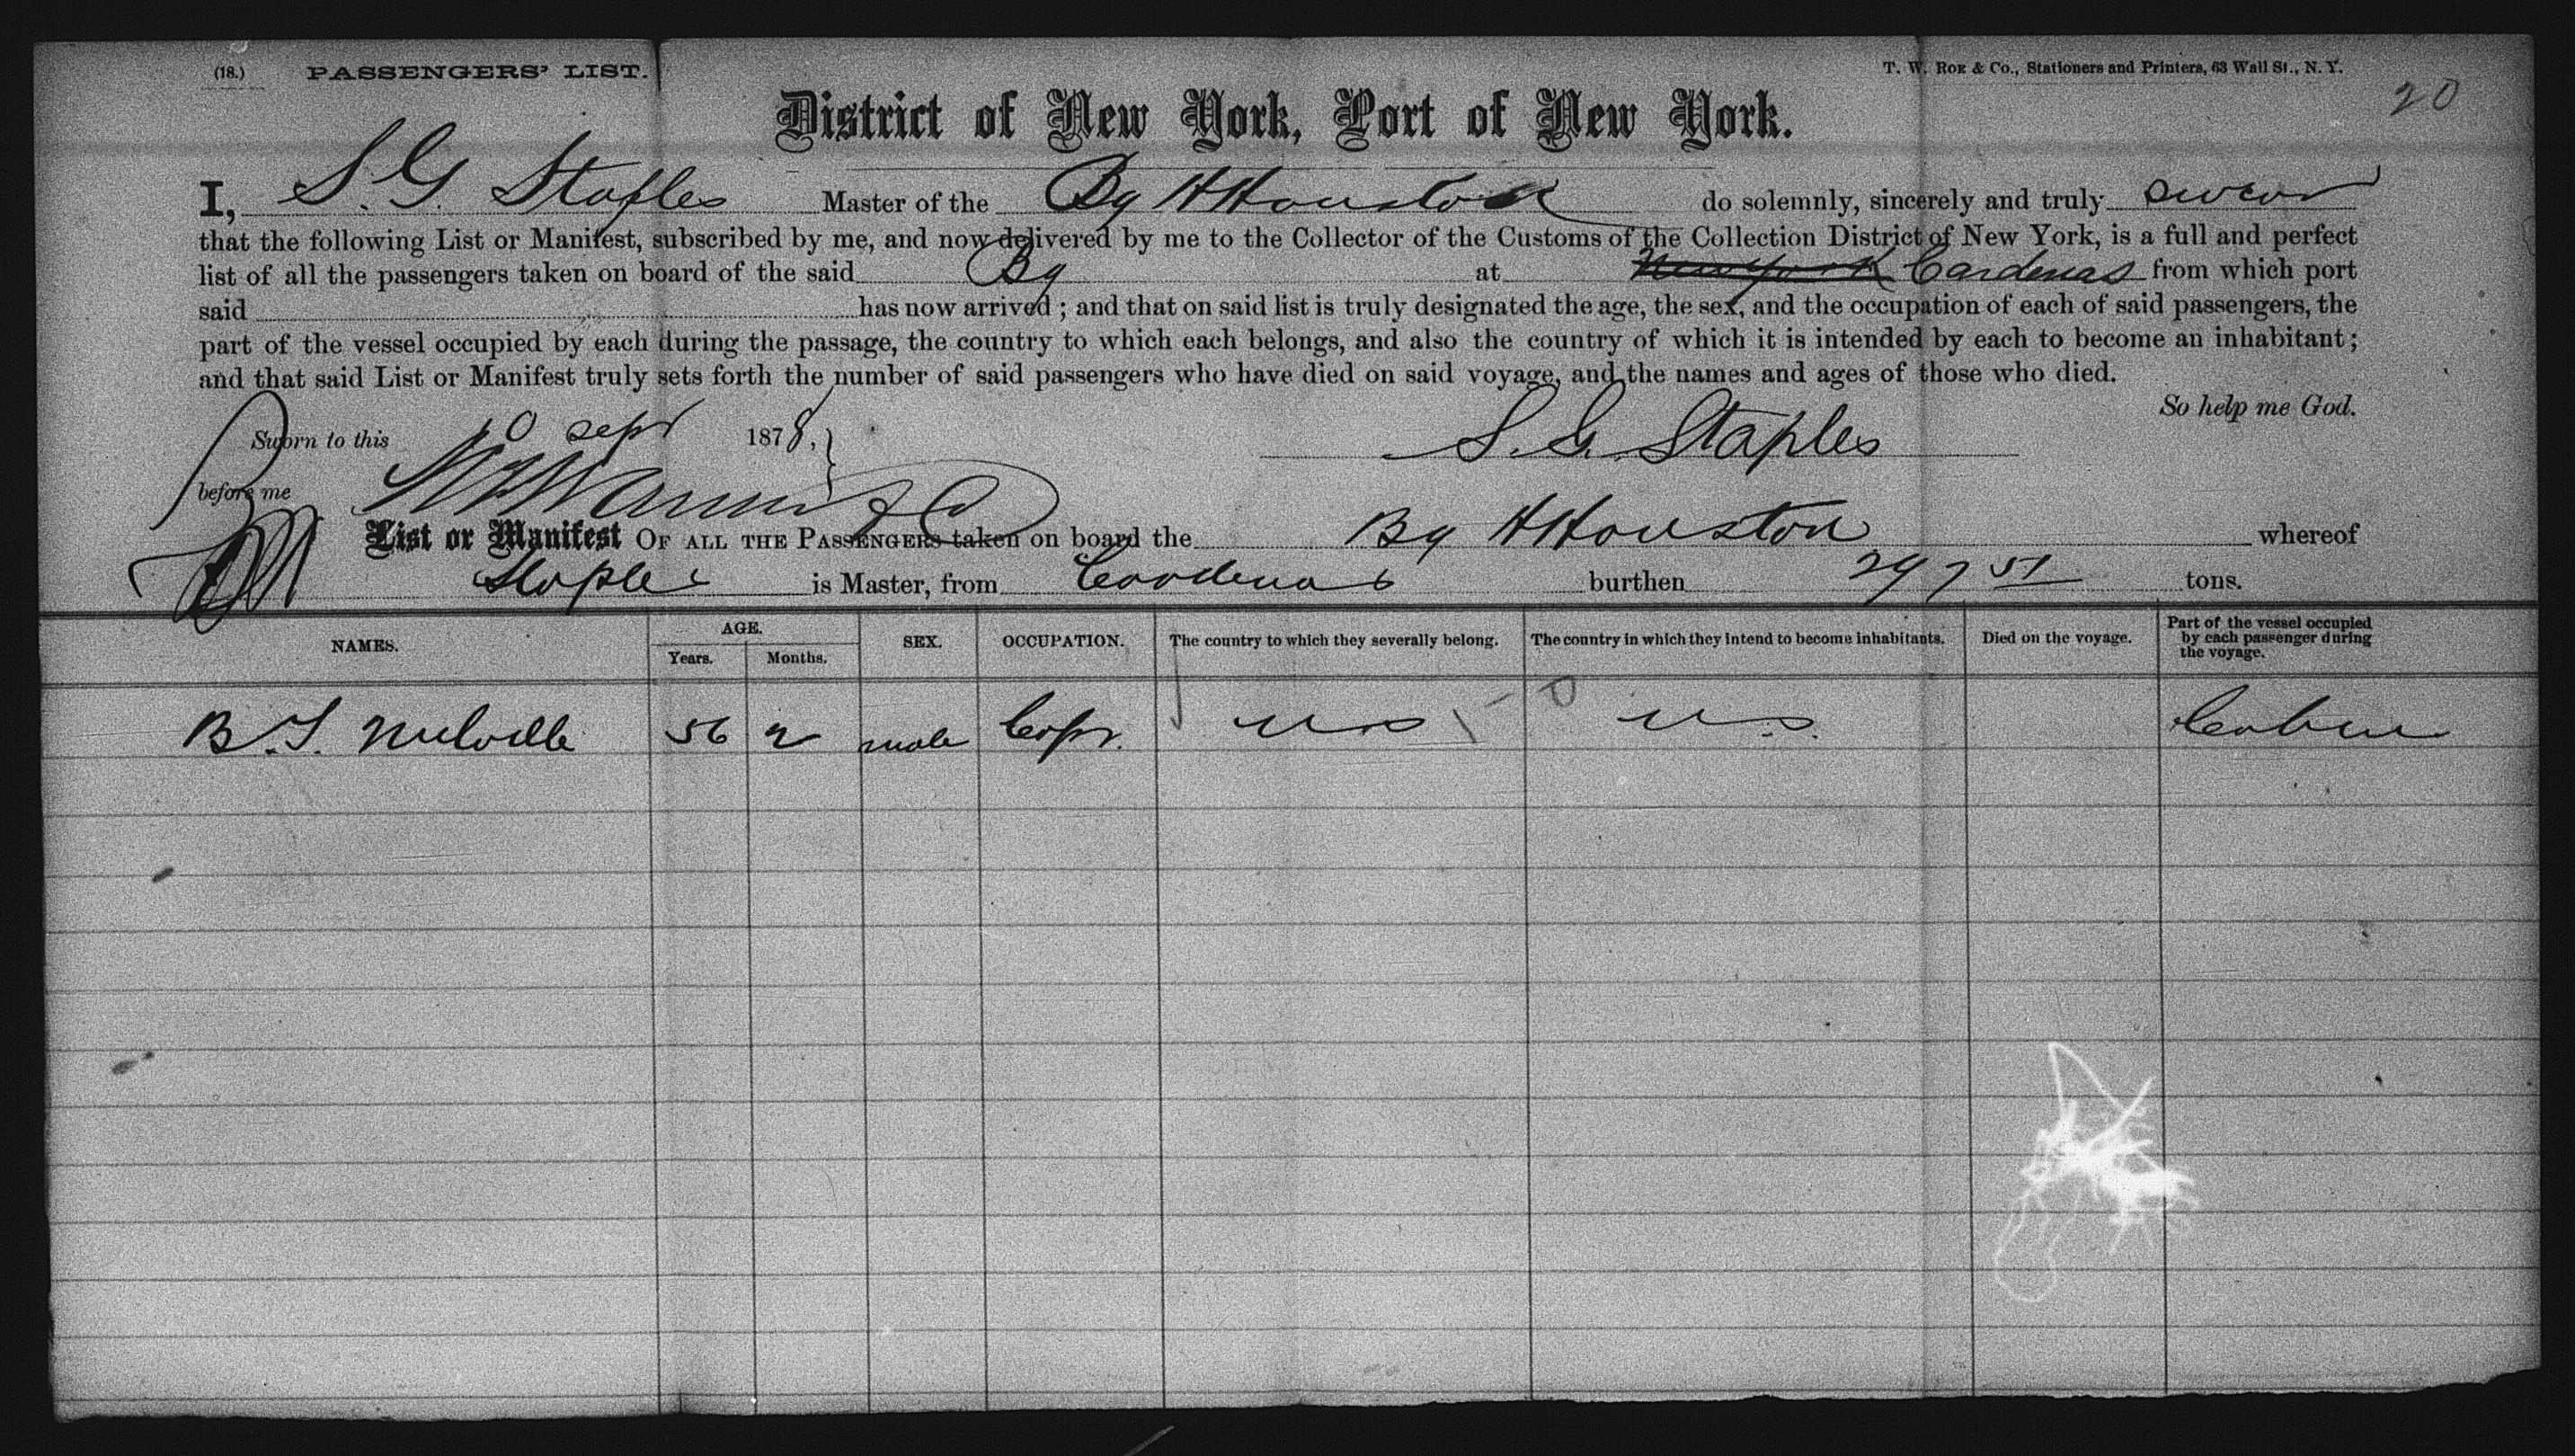 (18.) PASSENGERS' LIST. T. W. ROE & Co., Stationers and Printers, 63 Wall St., N. Y.
20
District of New York, Port of New York.
I, S. G. Staples Master of the Bg H Houston do solemnly, sincerely and truly swear
that the following List or Manifest, subscribed by me, and now delivered by me to the Collector of the Customs of the Collection District of New York, is a full and perfect
list of all the passengers taken on board of the said Bg at New York Cardenas from which port
said has now arrived; and that on said list is truly designated the age, the sex, and the occupation of each of said passengers, the
part of the vessel occupied by each during the passage, the country to which each belongs, and also the country of which it is intended by each to become an inhabitant;
and that said List or Manifest truly sets forth the number of said passengers who have died on said voyage, and the names and ages of those who died.
So help me God.
Sworn to this 10 Sept 1878, S. G. Staples
before me
List or Manifest OF ALL THE PASSENGERS taken on board the Bg H Houston whereof
Staples is Master, from Cardenas burthen 297 51 tons.
NAMES. AGE. Years. Months. SEX. OCCUPATION. The country to which they severally belong. The country in which they intend to become inhabitants. Died on the voyage. Part of the vessel occupied by each passenger during the voyage.
B. Melville 56 2 male Capt. U S U.S. Cabin